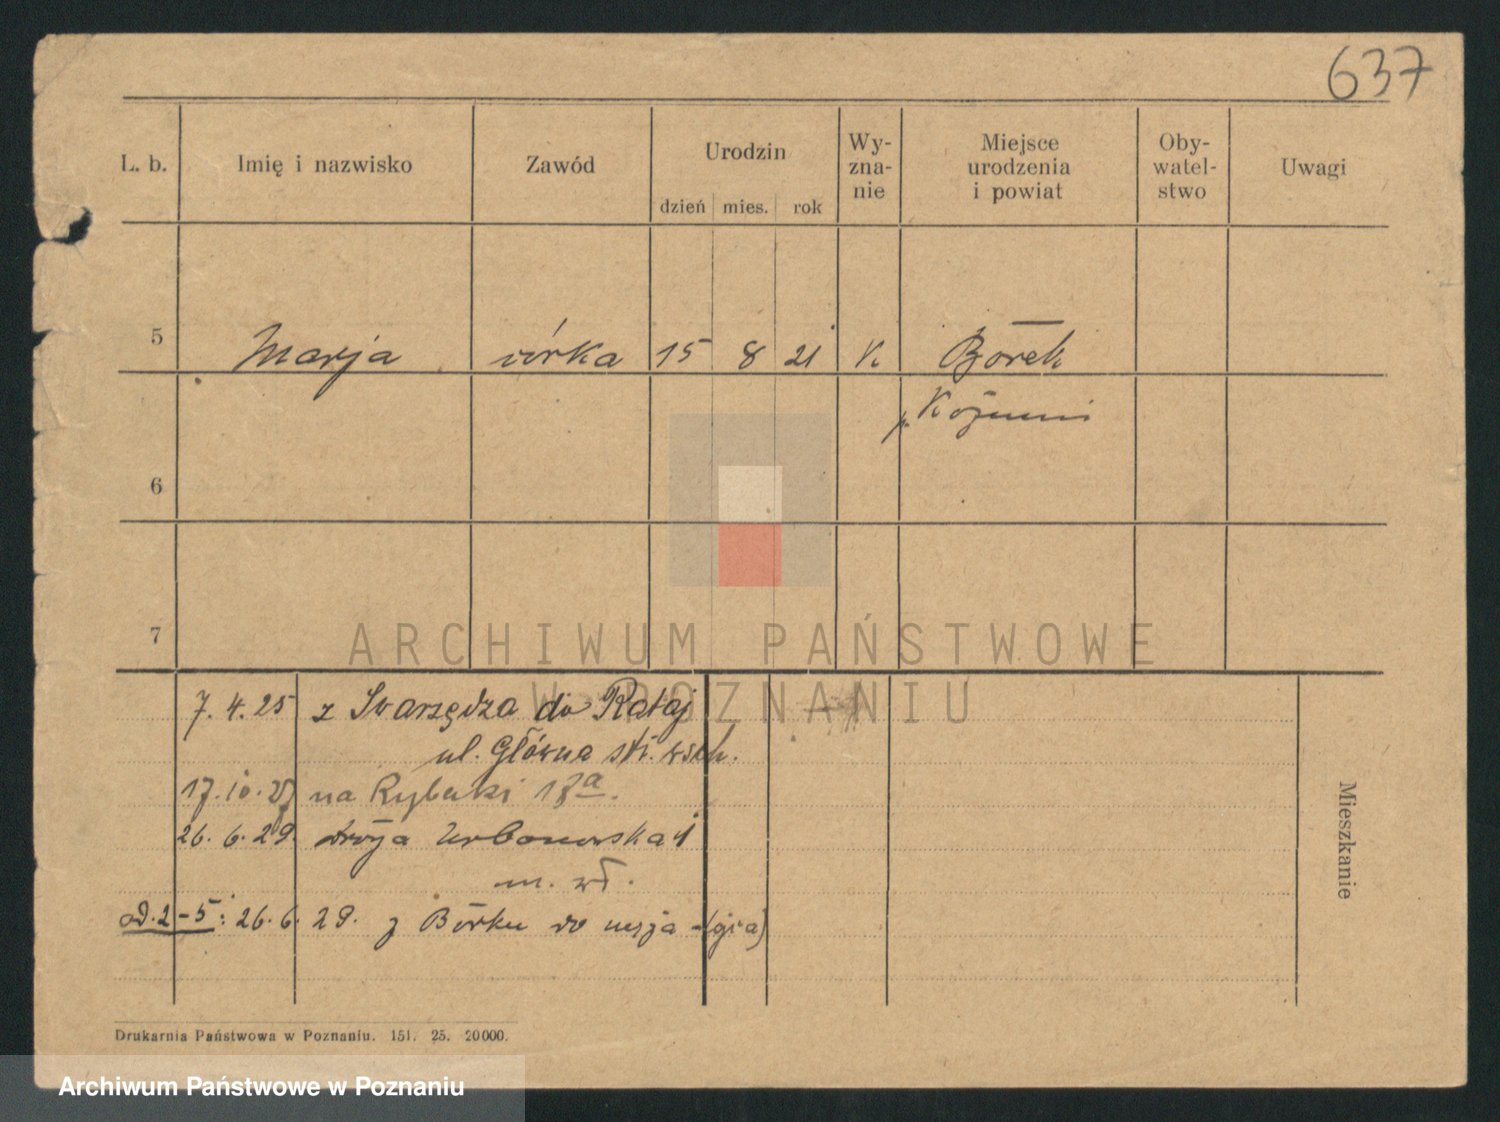 637
L. b.
Imię i nazwisko
Zawód
Urodzin
dzień mies. rok
Wy-
zna-
nie
Miejsce
urodzenia
i powiat
Oby-
watel-
stwo
Uwagi
5 Marja córka 15 8 21 K Borek
p. Koźmin
6
7
ARCHIWUM PAŃSTWOWE
W POZNANIU
7.4.25 z Swarzędza do Rataj
ul. Główna str. wsch.
17.10.27 na Rybaki 18a.
26.6.29. Urbanowska 1
m. wł.
od. 2-5: 26.6.29. z Borku do
Mieszkanie
Drukarnia Państwowa w Poznaniu. 151. 25. 20000.
Archiwum Państwowe w Poznaniu